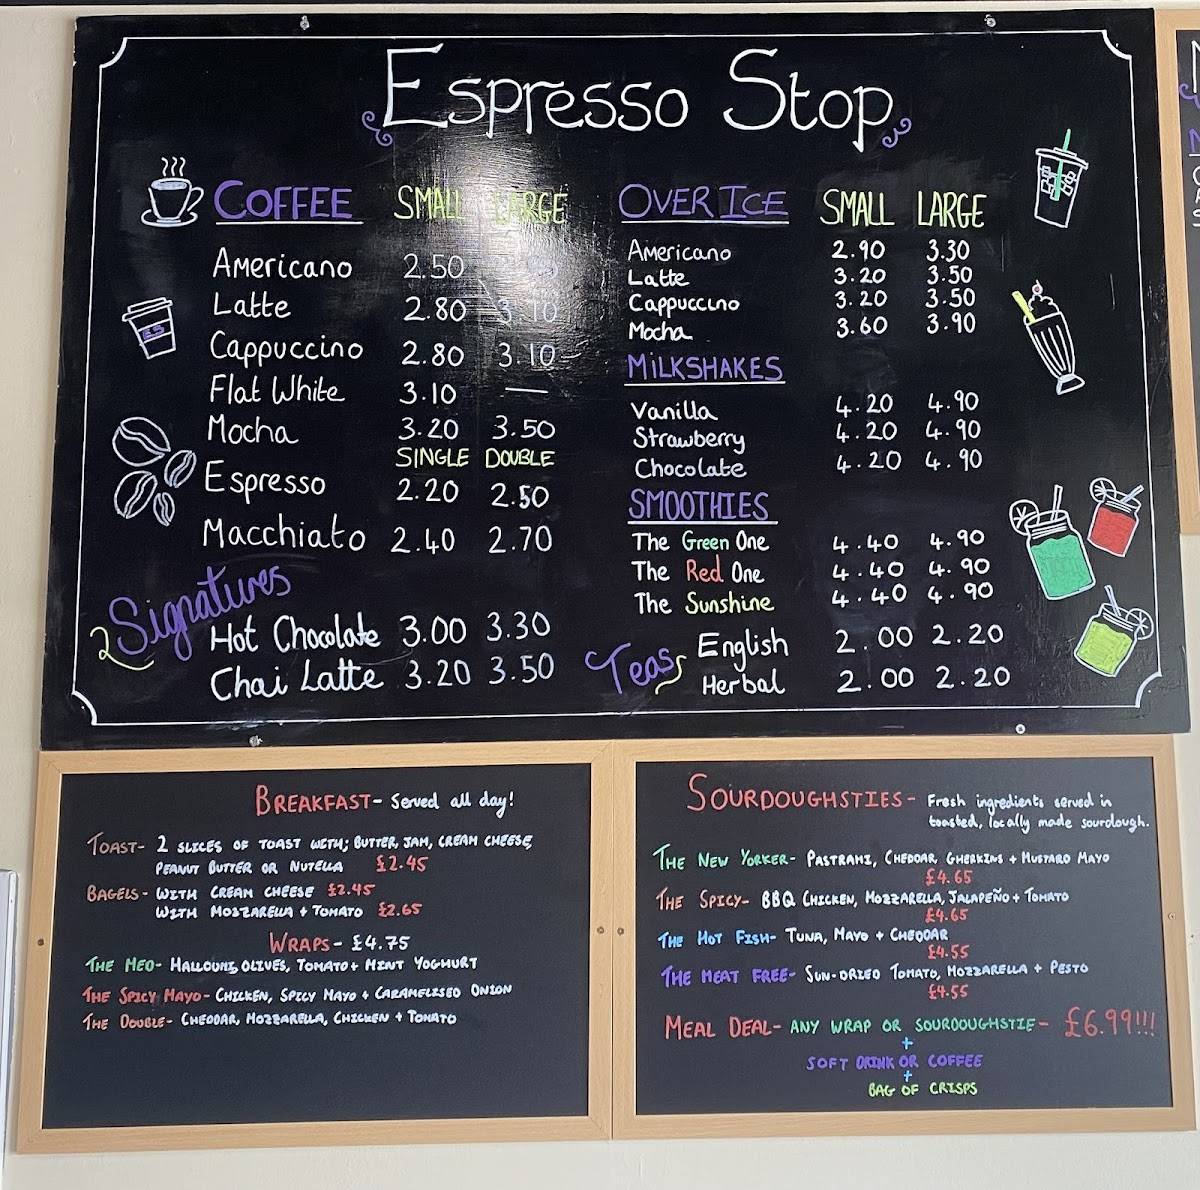 Espresso Stop
COFFEE SMALL LARGE
Americano 2.50
Latte 2.80 3.10
Cappuccino 2.80 3.10
Flat White 3.10 —
Mocha 3.20 3.50
SINGLE DOUBLE
Espresso 2.20 2.50
Macchiato 2.40 2.70
Signatures
Hot Chocolate 3.00 3.30
Chai Latte 3.20 3.50
OVER ICE SMALL LARGE
Americano 2.90 3.30
Latte 3.20 3.50
Cappuccino 3.20 3.50
Mocha 3.60 3.90
MILKSHAKES
Vanilla 4.20 4.90
Strawberry 4.20 4.90
Chocolate 4.20 4.90
SMOOTHIES
The Green One 4.40 4.90
The Red One 4.40 4.90
The Sunshine 4.40 4.90
Teas
English 2.00 2.20
Herbal 2.00 2.20
ES
BREAKFAST- Served all day!
TOAST- 2 SLICES OF TOAST WITH; BUTTER, JAM, CREAM CHEESE,
PEANUT BUTTER OR NUTELLA £2.45
BAGELS- WITH CREAM CHEESE £2.45
WITH MOZZARELLA + TOMATO £2.65
WRAPS- £4.75
THE MED- HALLOUMI, OLIVES, TOMATO + MINT YOGHURT
THE SPICY MAYO- CHICKEN, SPICY MAYO + CARAMELISED ONION
THE DOUBLE- CHEDDAR, MOZZARELLA, CHICKEN + TOMATO
SOURDOUGHSTIES- Fresh ingredients served in
toasted, locally made sourdough.
THE NEW YORKER- PASTRAMI, CHEDDAR, GHERKINS + MUSTARD MAYO
£4.65
THE SPICY- BBQ CHICKEN, MOZZARELLA, JALAPEÑO + TOMATO
£4.65
THE HOT FISH- TUNA, MAYO + CHEDDAR
£4.55
THE MEAT FREE- SUN-DRIED TOMATO, MOZZARELLA + PESTO
£4.55
MEAL DEAL- ANY WRAP OR SOURDOUGHSTIE- £6.99!!!
+
SOFT DRINK OR COFFEE
+
BAG OF CRISPS